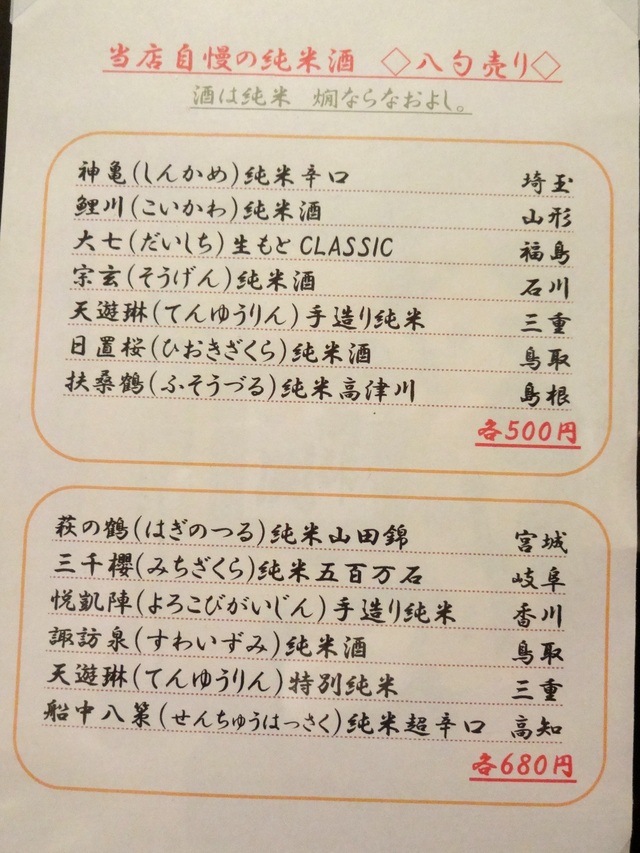 当店自慢の純米酒　◇八勺売り◇
酒は純米　燗ならなおよし。
神亀(しんかめ)純米辛口　埼玉
鯉川(こいかわ)純米酒　山形
大七(だいしち)生もとCLASSIC　福島
宗玄(そうげん)純米酒　石川
天遊琳(てんゆうりん)手造り純米　三重
日置桜(ひおきざくら)純米酒　鳥取
扶桑鶴(ふそうづる)純米高津川　島根
各500円
萩の鶴(はぎのつる)純米山田錦　宮城
三千櫻(みちざくら)純米五百万石　岐阜
悦凱陣(よろこびがいじん)手造り純米　香川
諏訪泉(すわいずみ)純米酒　鳥取
天遊琳(てんゆうりん)特別純米　三重
船中八策(せんちゅうはっさく)純米超辛口　高知
各680円